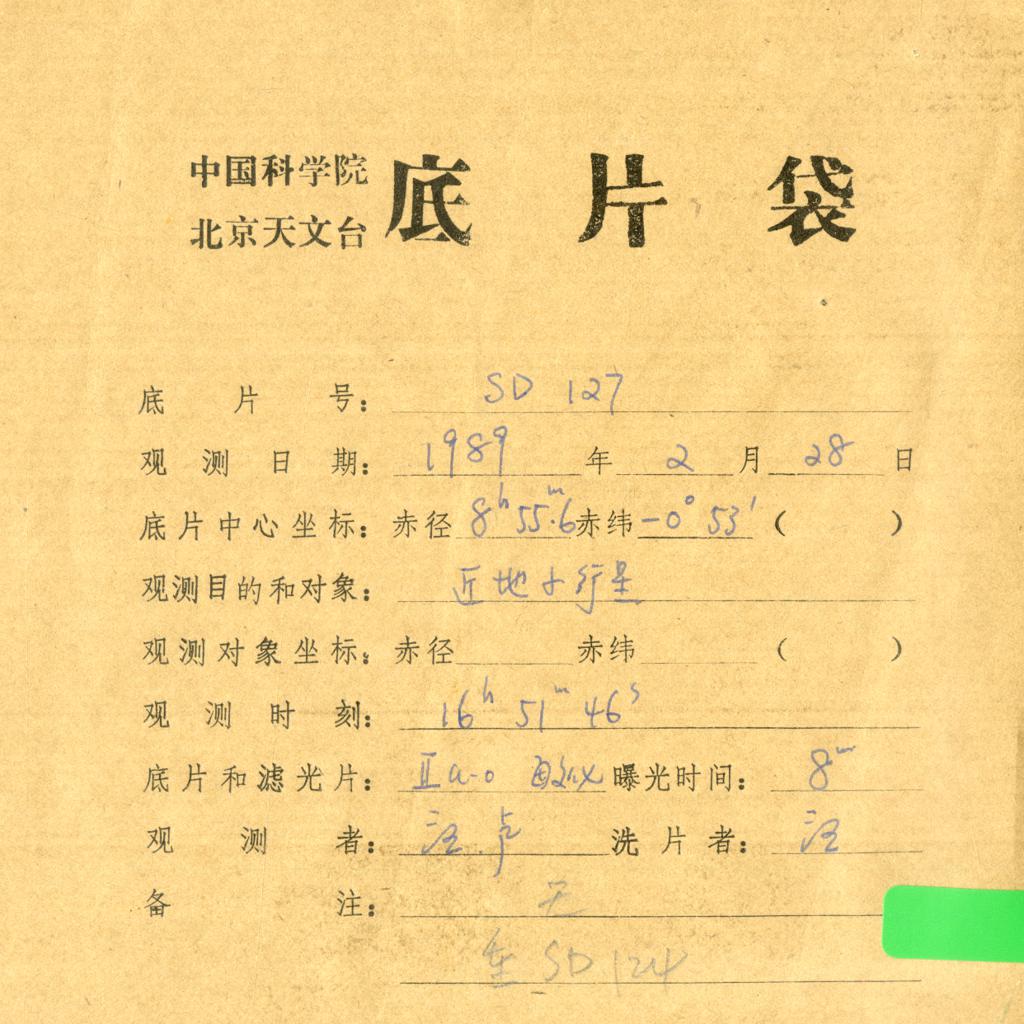 中国科学院
北京天文台
底片袋
底片号： SD 127
观测日期： 1989 年 2 月 28 日
底片中心坐标： 赤径 8h 55m.6 赤纬 -0° 53′ （ ）
观测目的和对象： 近地小行星
观测对象坐标： 赤径 赤纬 （ ）
观测时刻： 16h 51m 46s
底片和滤光片： IIa-O 曝光时间： 8m
观测者： 汪.卢 洗片者： 汪
备注： 无
重 SD 124